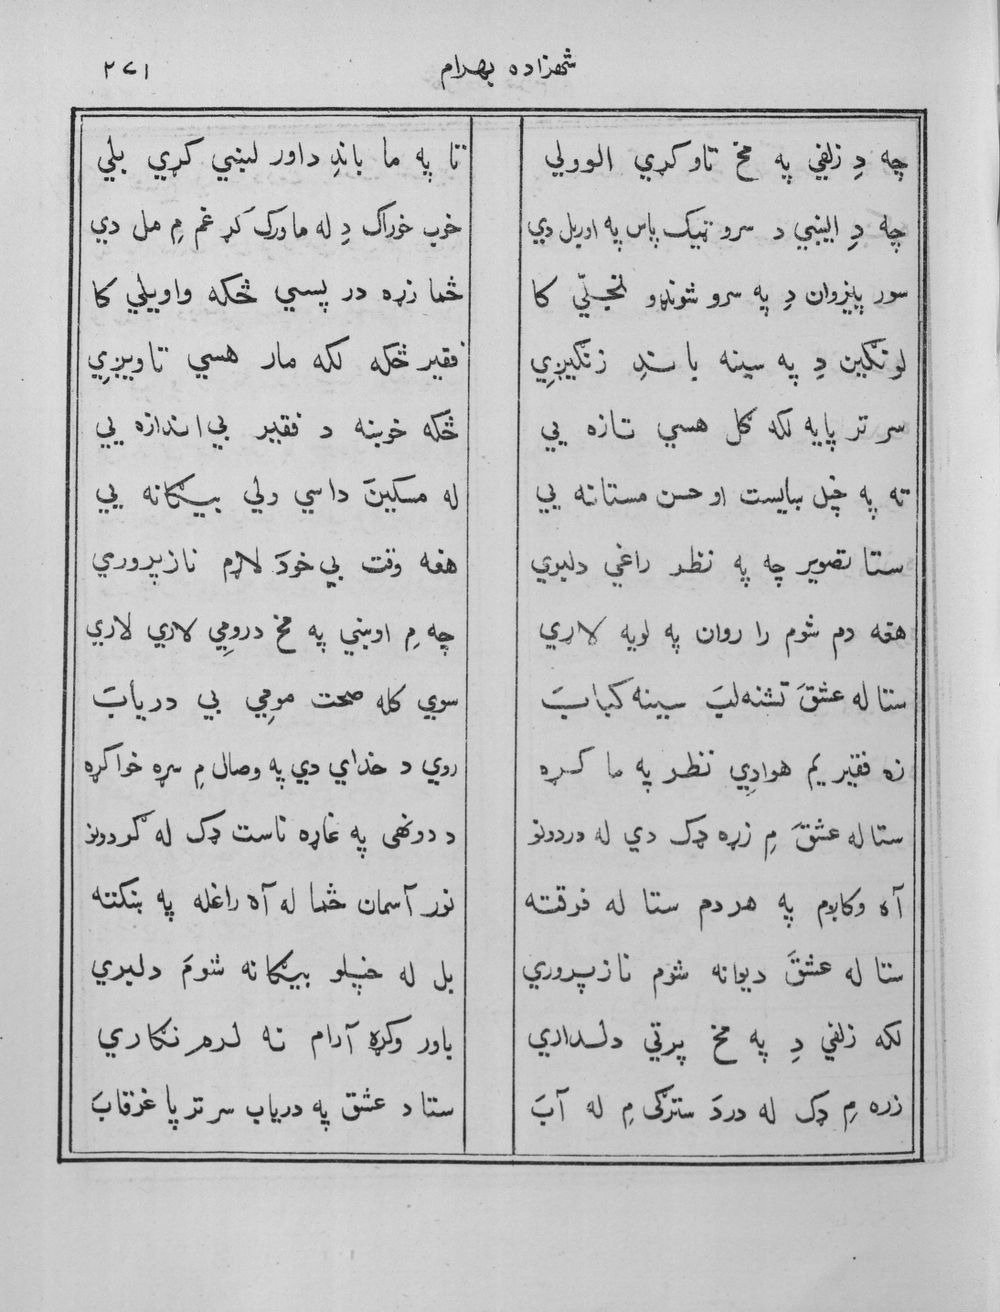 شهزاده بهرام ٢٧١
چه دِ زلفي په مخ تاو کړي الوولي تا په ما باندِ داور لښي کړي بلي
چه دِ اليښي د سرو ټيک پاس په اوربل دي خوب خوراک دِ له ما ورک کړ غم مِ مل دي
سور پيزوان دِ په سرو شونډو تجلّي کا څما زړه در پسي ځکه واويلي کا
لونګين دِ په سينه باندِ زنګيږي فقير ځکه لکه مار هسي تاويږي
سر تر پايه لکه ګل هسي تازه يي ځکه خوښه د فقير بي اندازه يي
ته په خپل ښايست او حسن مستانه يي له مسکينَ داسي ولي بيګانه يي
ستا تصوير چه په نظر راغي دلبري هغه وقت بي خودَ لاړم نازپروري
هغه دم شوم را روان په لويه لاري چه مِ اوښي په مخ درومي لاري لاري
ستا له عشقَ تشنه لبَ سينه کبابَ سوي کله صحت مومي بي دريابَ
زه فقير يم هوادي نظر په ما کړه روي د خداي دي په وصال مِ سړه خوا کړه
ستا له عشقَ مِ زړه ډک دي له دردونو د دونهی په غاړه ناست ډک له ګردونو
آه وکاږم په هر دم ستا له فرقته نور آسمان څما له آه راغله په ښکته
ستا له عشقَ ديوانه شوم نازپروري بل له خپلو بيګانه شومَ دلبري
لکه زلفي دِ په مخ پرتي دلداري باور وکړه آرام نه لرم نګاري
زړه مِ ډک له دردَ سترګی مِ له آبَ ستا د عشق په درياب سر تر پا غرقابَ